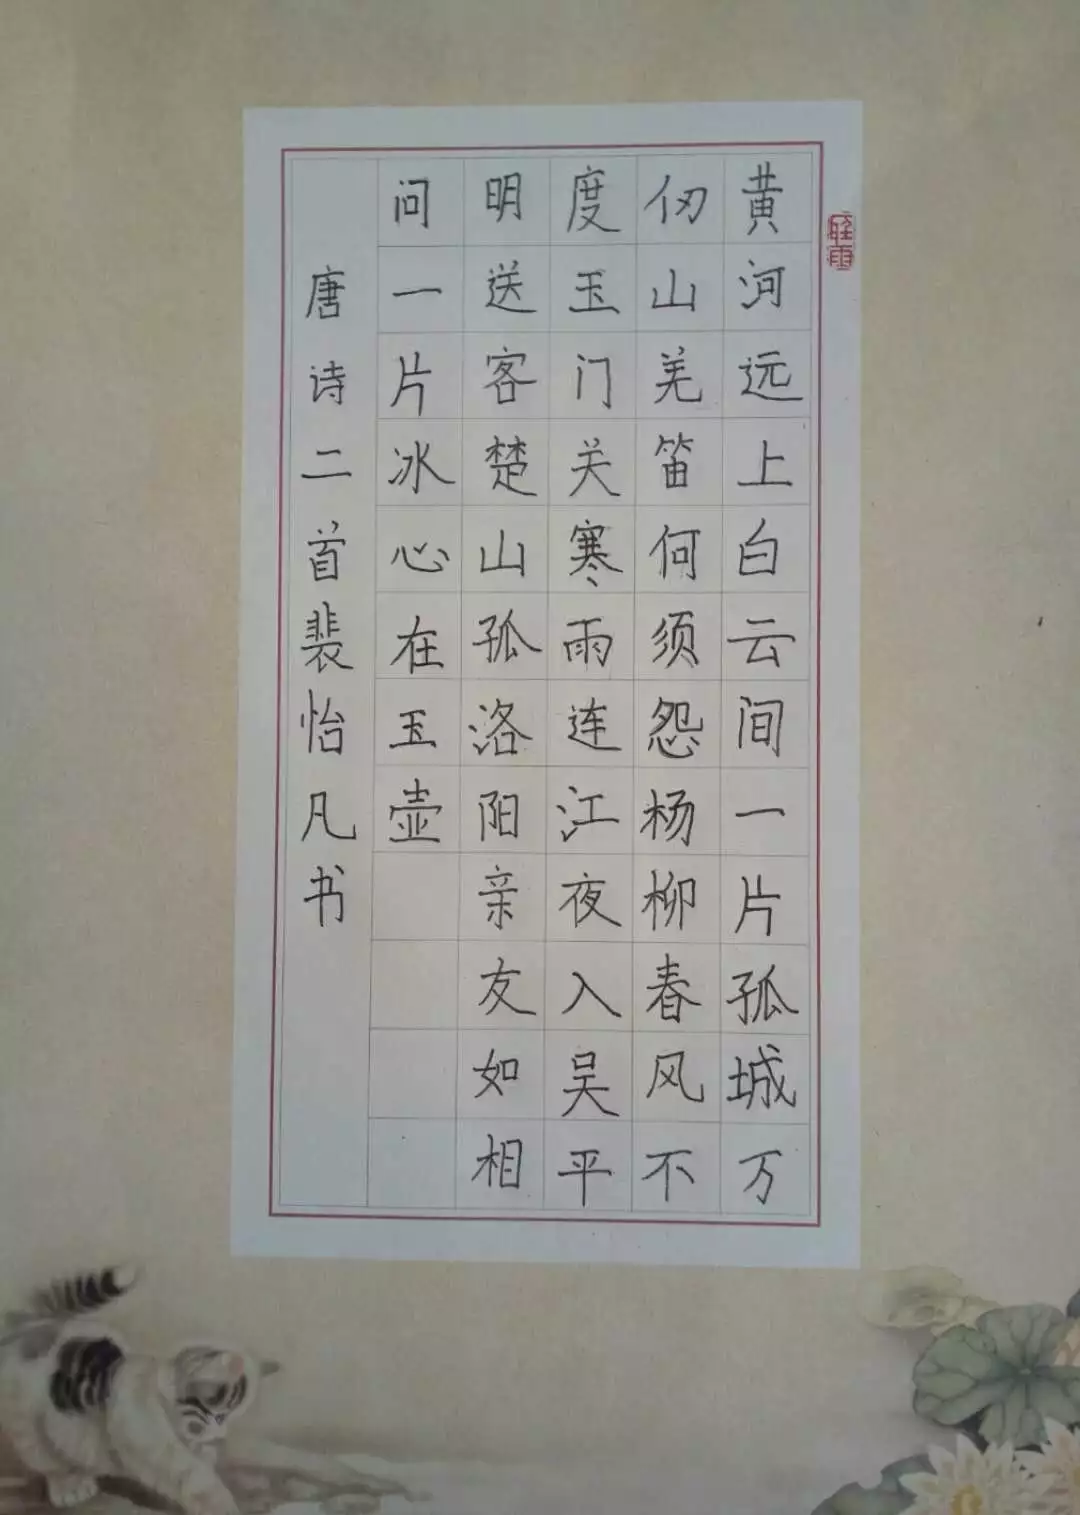 黄河远上白云间一片孤城万
仞山羌笛何须怨杨柳春风不
度玉门关寒雨连江夜入吴平
明送客楚山孤洛阳亲友如相
问一片冰心在玉壶
唐诗二首裴怡凡书